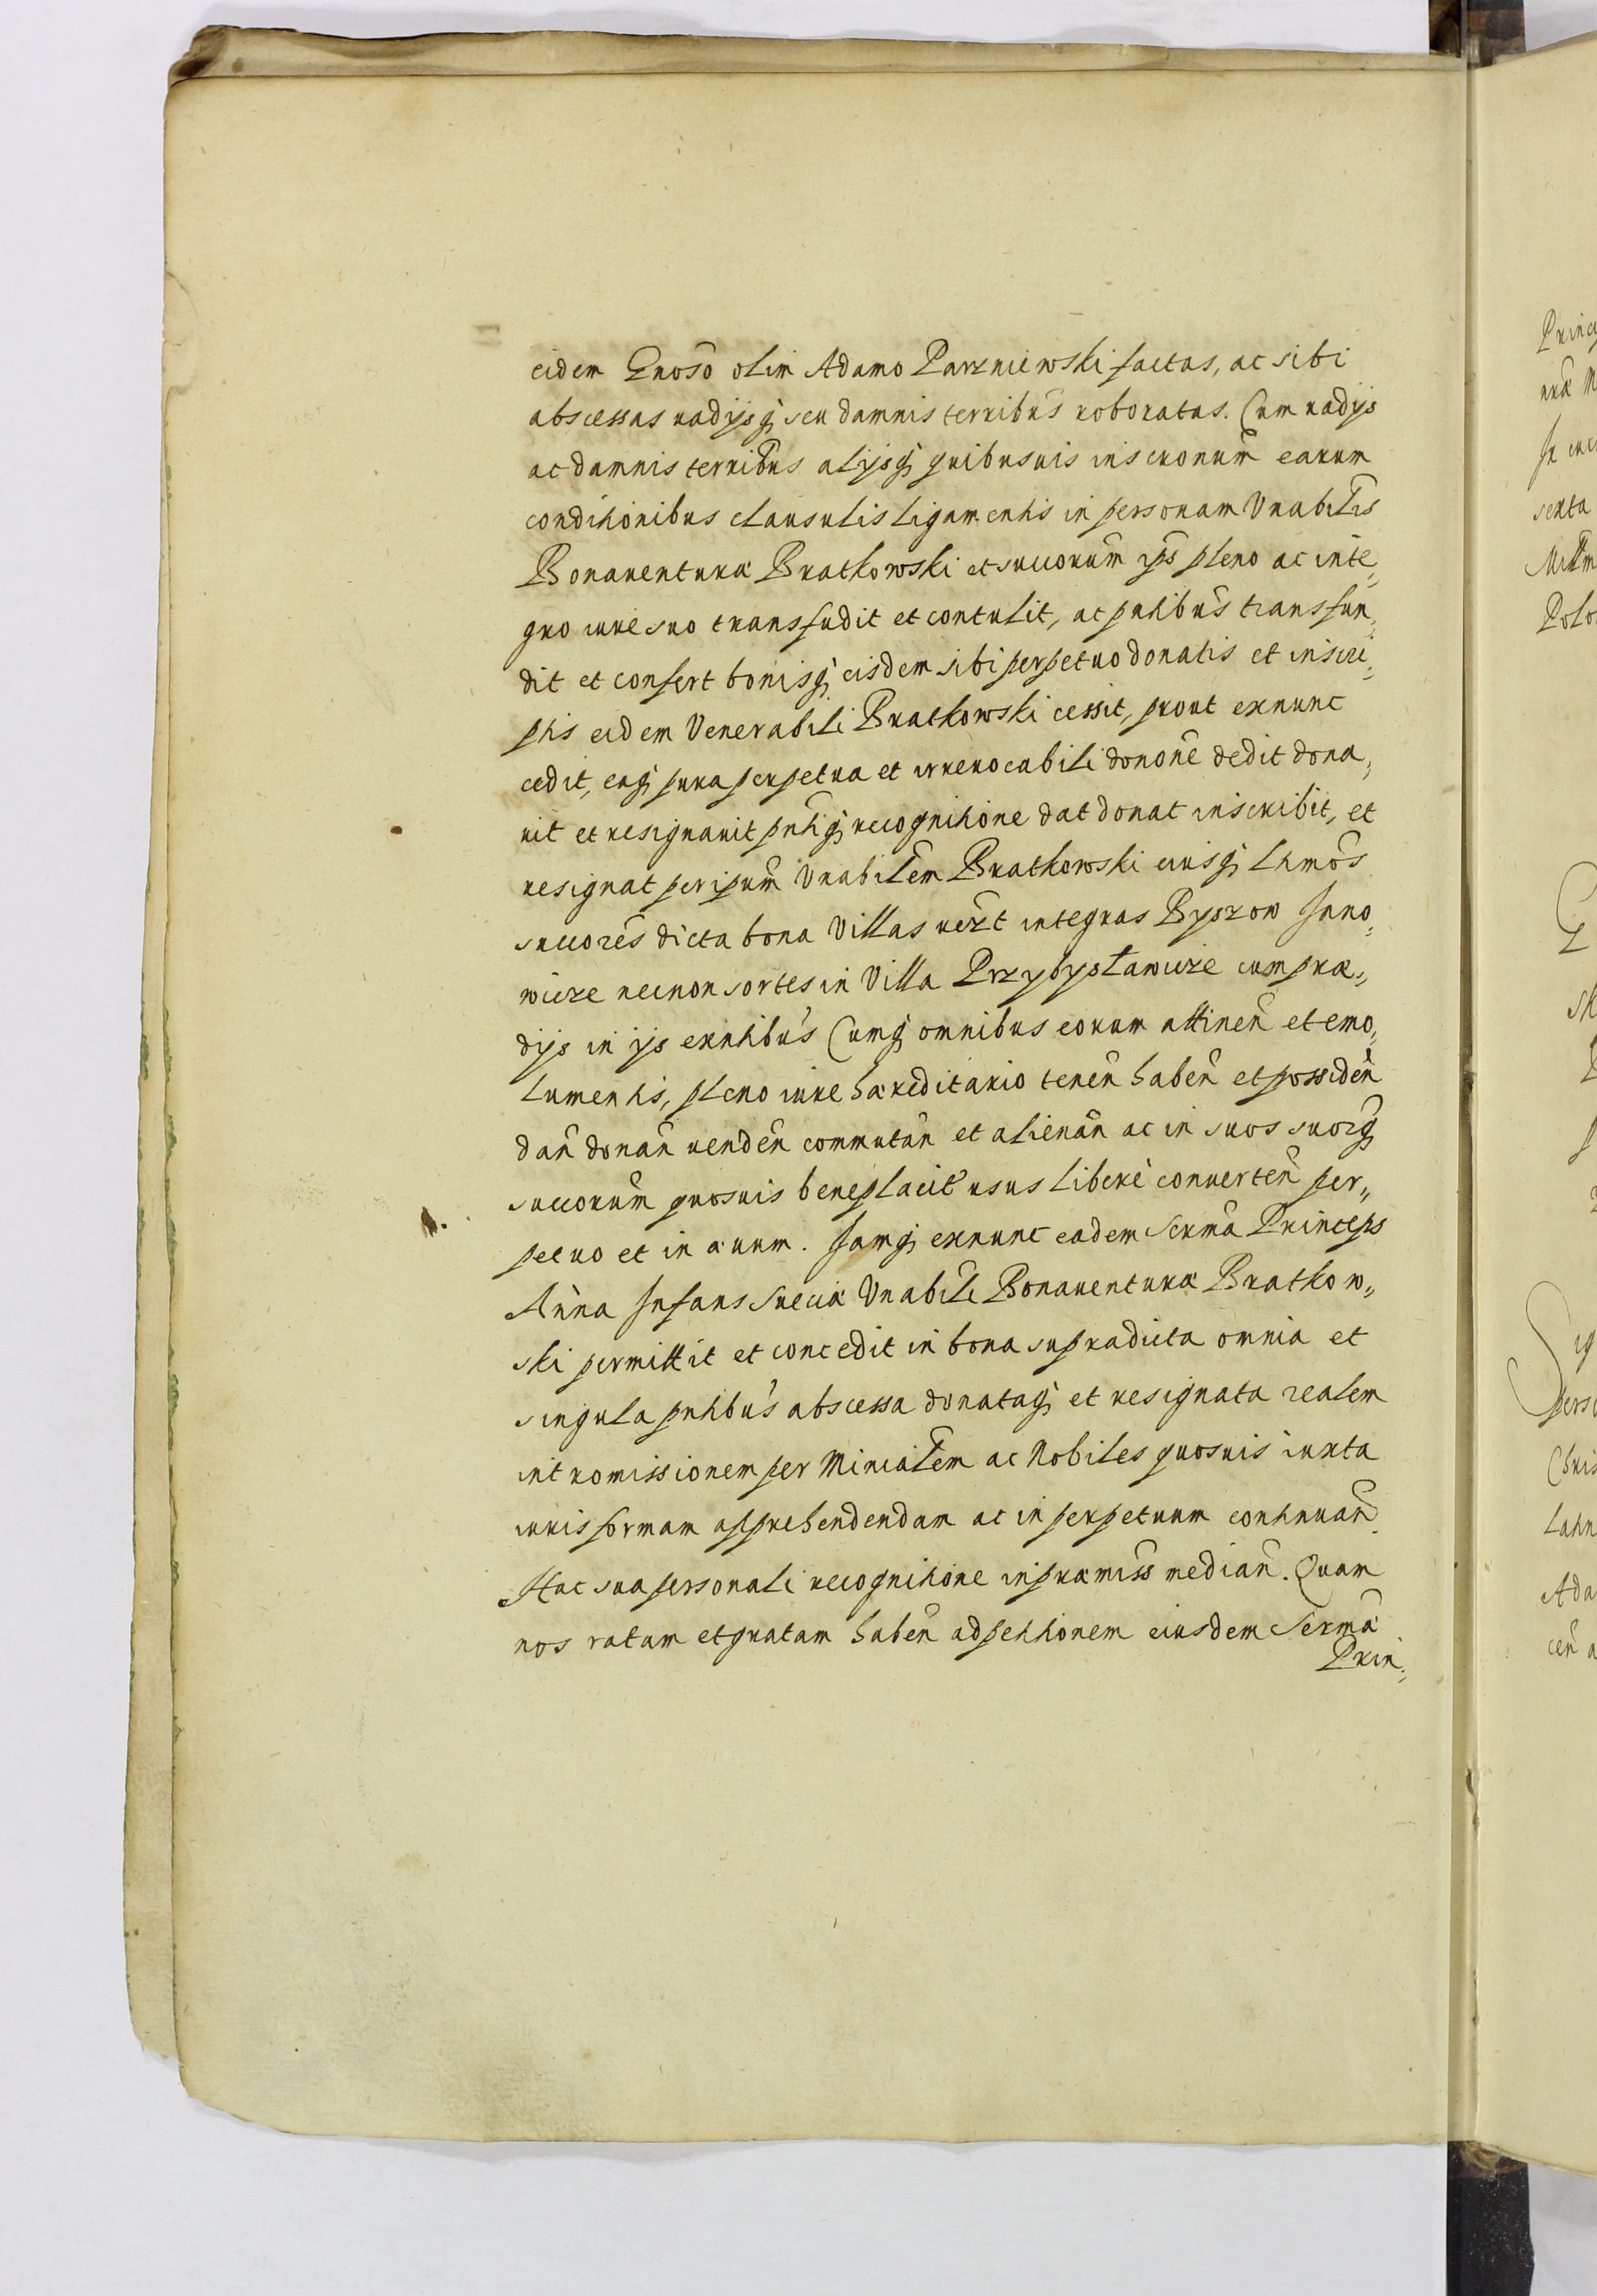 eidem Gnoso olim Adamo Parzniewski factas, ac sibi
abscessas vadijsq; seu damnis terribus roboratas. Cum vadijs
ac damnis terribus alijsq; quibusuis inscronum earum
conditionibus clausulis ligamentis in personam Vnabilis
Bonauenturæ Bratkowski et succorum ips pleno ac inte,,
gro iure suo transfudit et contulit, ac pntibus transfun,,
dit et confert bonisq; eisdem sibi perpetuo donatis et inscri,,
ptis eidem Venerabili Bratkowski cessit, prout exnunc
cedit, eaq; pura perpetua et irreuocabili donone dedit dona,,
uit et resignauit pntiq; recognitione dat donat inscribit, et
resignat per ipsum Vnabilem Bratkowski eiusq; lhmos
succores dicta bona Villas uezt integras Byszow Jano,,
wicze necnon sortes in Villa Przybysławicze cum præ,,
dijs in ijs exntibus Cumq; omnibus eorum attinen et emo,,
lumentis, pleno iure hæreditario tenen haben et possiden
dan donan uenden commutan et alienan ac in suos suorq;
succorum quosuis beneplacit usus liberè conuerten per,,
petuo et in æuum. Jamq; exnunc eadem Serma Princeps
Anna Infans Sueciæ Vnabili Bonauenturæ Bratkow,,
ski permittit et concedit in bona supradicta omnia et
singula pntibus abscessa donataq; et resignata realem
intromissionem per Minialem ac Nobiles quosuis iuxta
iuris formam apprehendendam ac in perpetuum continuan
Hac sua personali recognitione in præmiss median. Quam
nos ratam et gratam haben ad petitionem eiusdem Sermæ
Prin,,